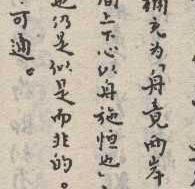 補充为「舟竟兩岸
間上下心以舟施恒也」，
也仍是似是而非的。
可通。